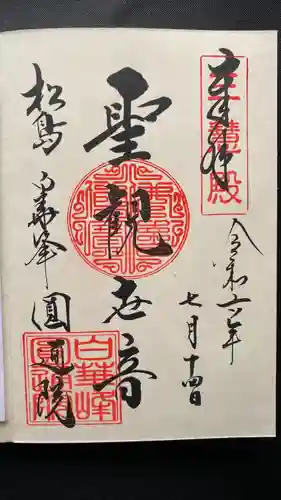 奉拝
三慧殿
令和六年
七月十四日
聖觀世音
松島 白華峰 圓通院
白華峰
圓通院